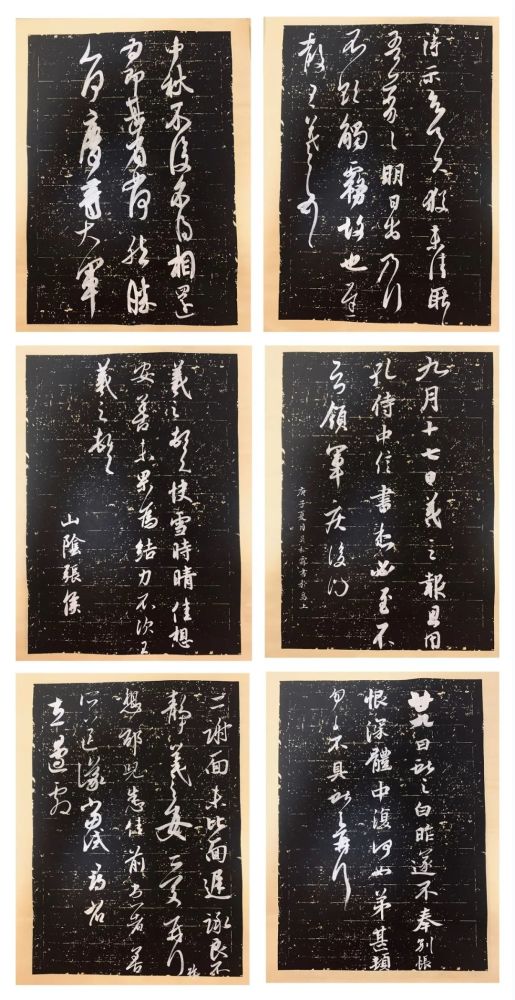 得示知足下猶未佳耿
吾亦劣劣明日出乃行
不欲觸霧故也遲
散王羲之頓首
中秋不復不得相還
為即甚省如何然勝
人何慶等大軍
九月十七日羲之報且因
孔侍中信書想必至不
知領軍疾後問
庚子夏月
羲之頓首快雪時晴佳想
安善未果為結力不次王
羲之頓首
山陰張侯
廿九日獻之白昨遂不奉別悵
恨深體中復何如弟甚頓
匆匆不具獻之再拜
二謝面未比面遲詠良不
靜羲之女愛再拜
想邰兒悉佳前患者善
所送議當試尋省
左邊劇